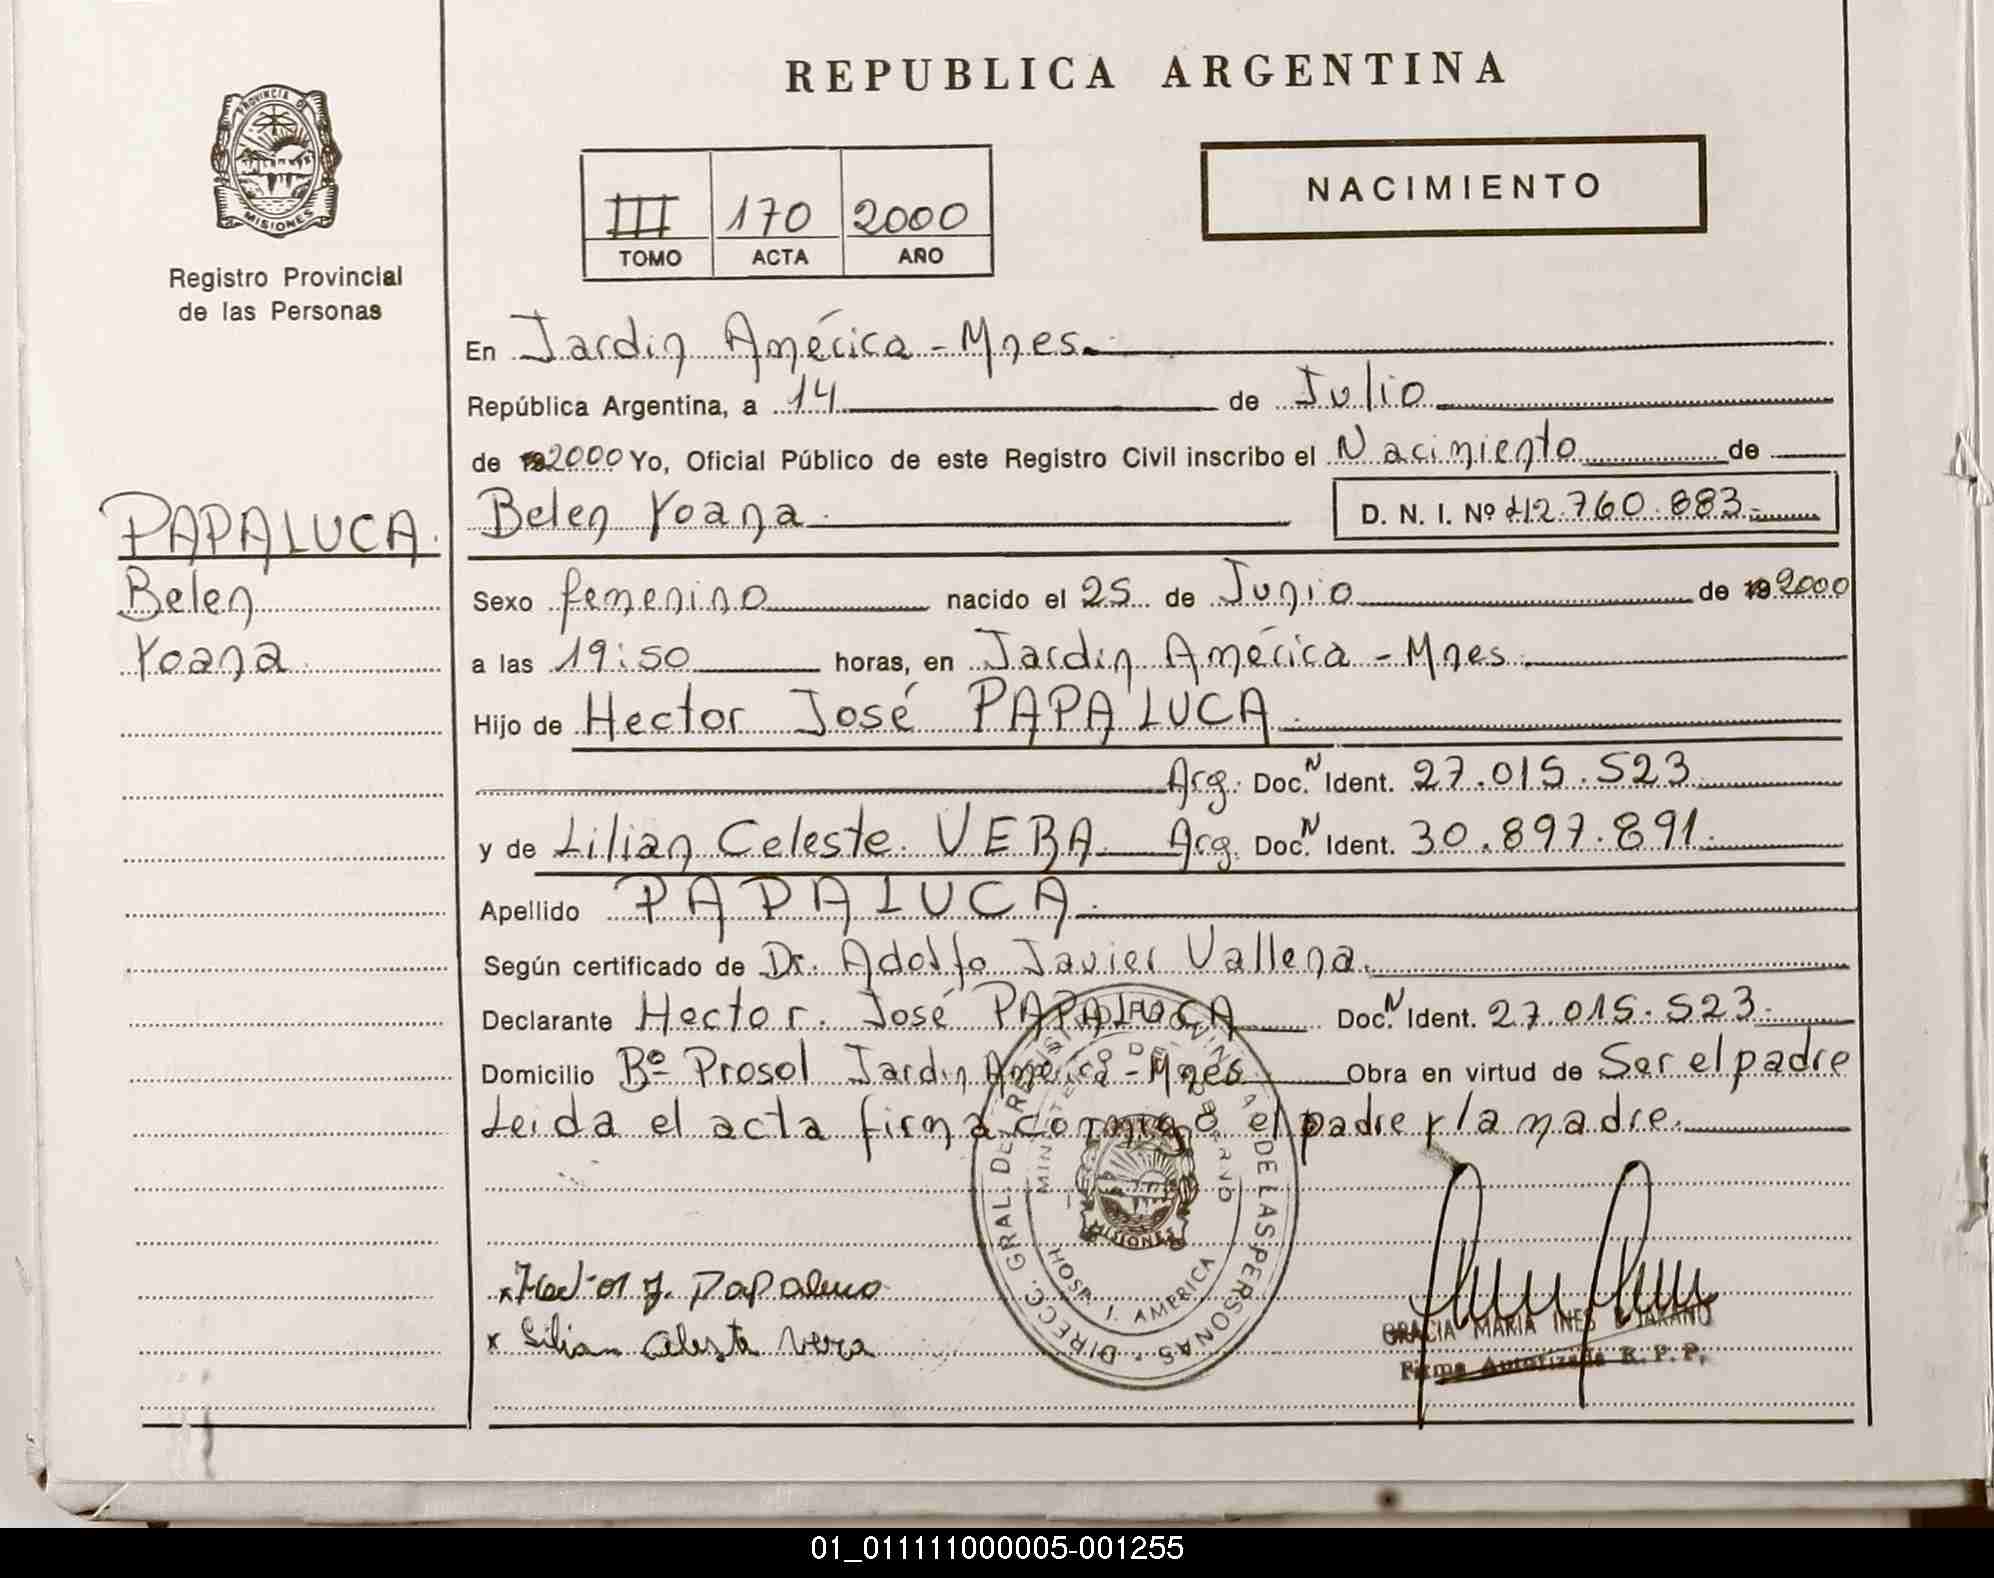 REPUBLICA ARGENTINA
PROVINCIA D
MISIONES
Registro Provincial
de las Personas
NACIMIENTO
III 170 2000
TOMO ACTA AÑO
En Jardin América - Mnes.
República Argentina, a 14 de Julio
de 2000 Yo, Oficial Público de este Registro Civil inscribo el Nacimiento de
Belen Yoana. D. N. I. Nº 42.760.883.-
PAPALUCA.
Belen
Yoana.
Sexo femenino nacido el 25 de Junio de 19 2000
a las 19:50 horas, en Jardin América - Mnes.
Hijo de Hector José PAPALUCA.
Arg. Doc. N Ident. 27.015.523
y de Lilian Celeste VERA Arg. Doc. N Ident. 30.897.891.
Apellido PAPALUCA.
Según certificado de Dr. Adolfo Javier Vallena.
Declarante Hector José PAPALUCA Doc. N Ident. 27.015.523.
Domicilio Bº Prosol Jardin América - Mnes Obra en virtud de Ser el padre
Leida el acta firma conmigo el padre y la madre.
DIRECC. GRAL. DE DE LAS PERSONAS
HOSP. J. AMERICA
MISIONES
x Hector J. Papaluca
x Lilian Celeste Vera
GRACIA MARIA INES BEJARANO
Firma Autorizada R. P. P.
01_011111000005-001255